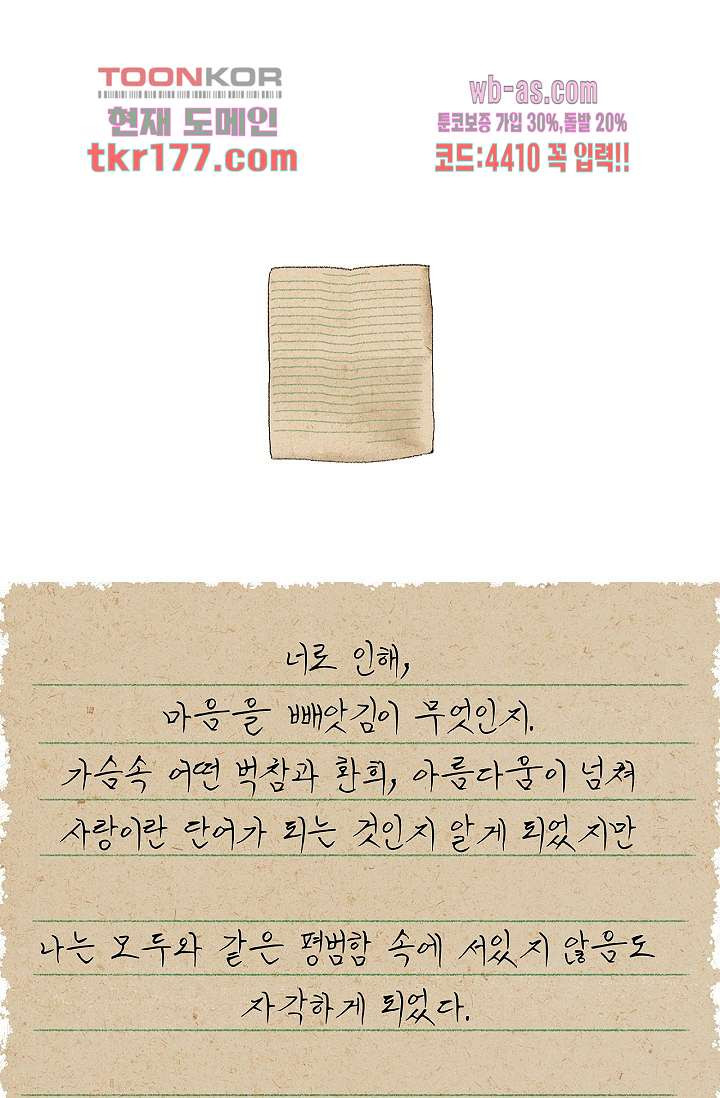 TOONKOR
현재 도메인
tkr177.com
wb-as.com
툰코보증 가입 30%,돌발 20%
코드:4410 꼭 입력!!
너로 인해,
마음을 빼앗김이 무엇인지.
가슴속 어떤 벅참과 환희, 아름다움이 넘쳐
사랑이란 단어가 되는 것인지 알게 되었지만
나는 모두와 같은 평범함 속에 서있지 않음도
자각하게 되었다.